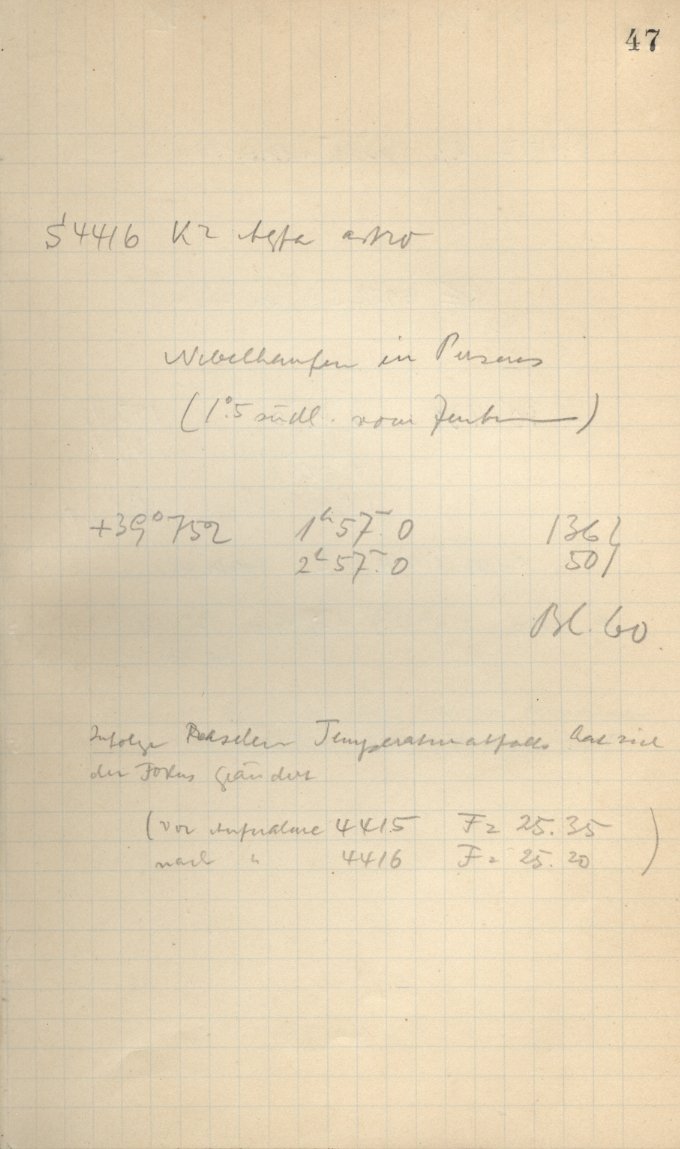 47
S 4416 K2 Agfa astro
Nebelhaufen in Perseus
(1°.5 südl. vom Zentrum)
+39° 752 1h 57m.0 136
2h 57m.0 50
Bl. 60
Infolge Raschem Temperaturabfalls hat sich
der Fokus geändert
(vor Aufnahme 4415 F = 25.35
nach " 4416 F = 25.20)